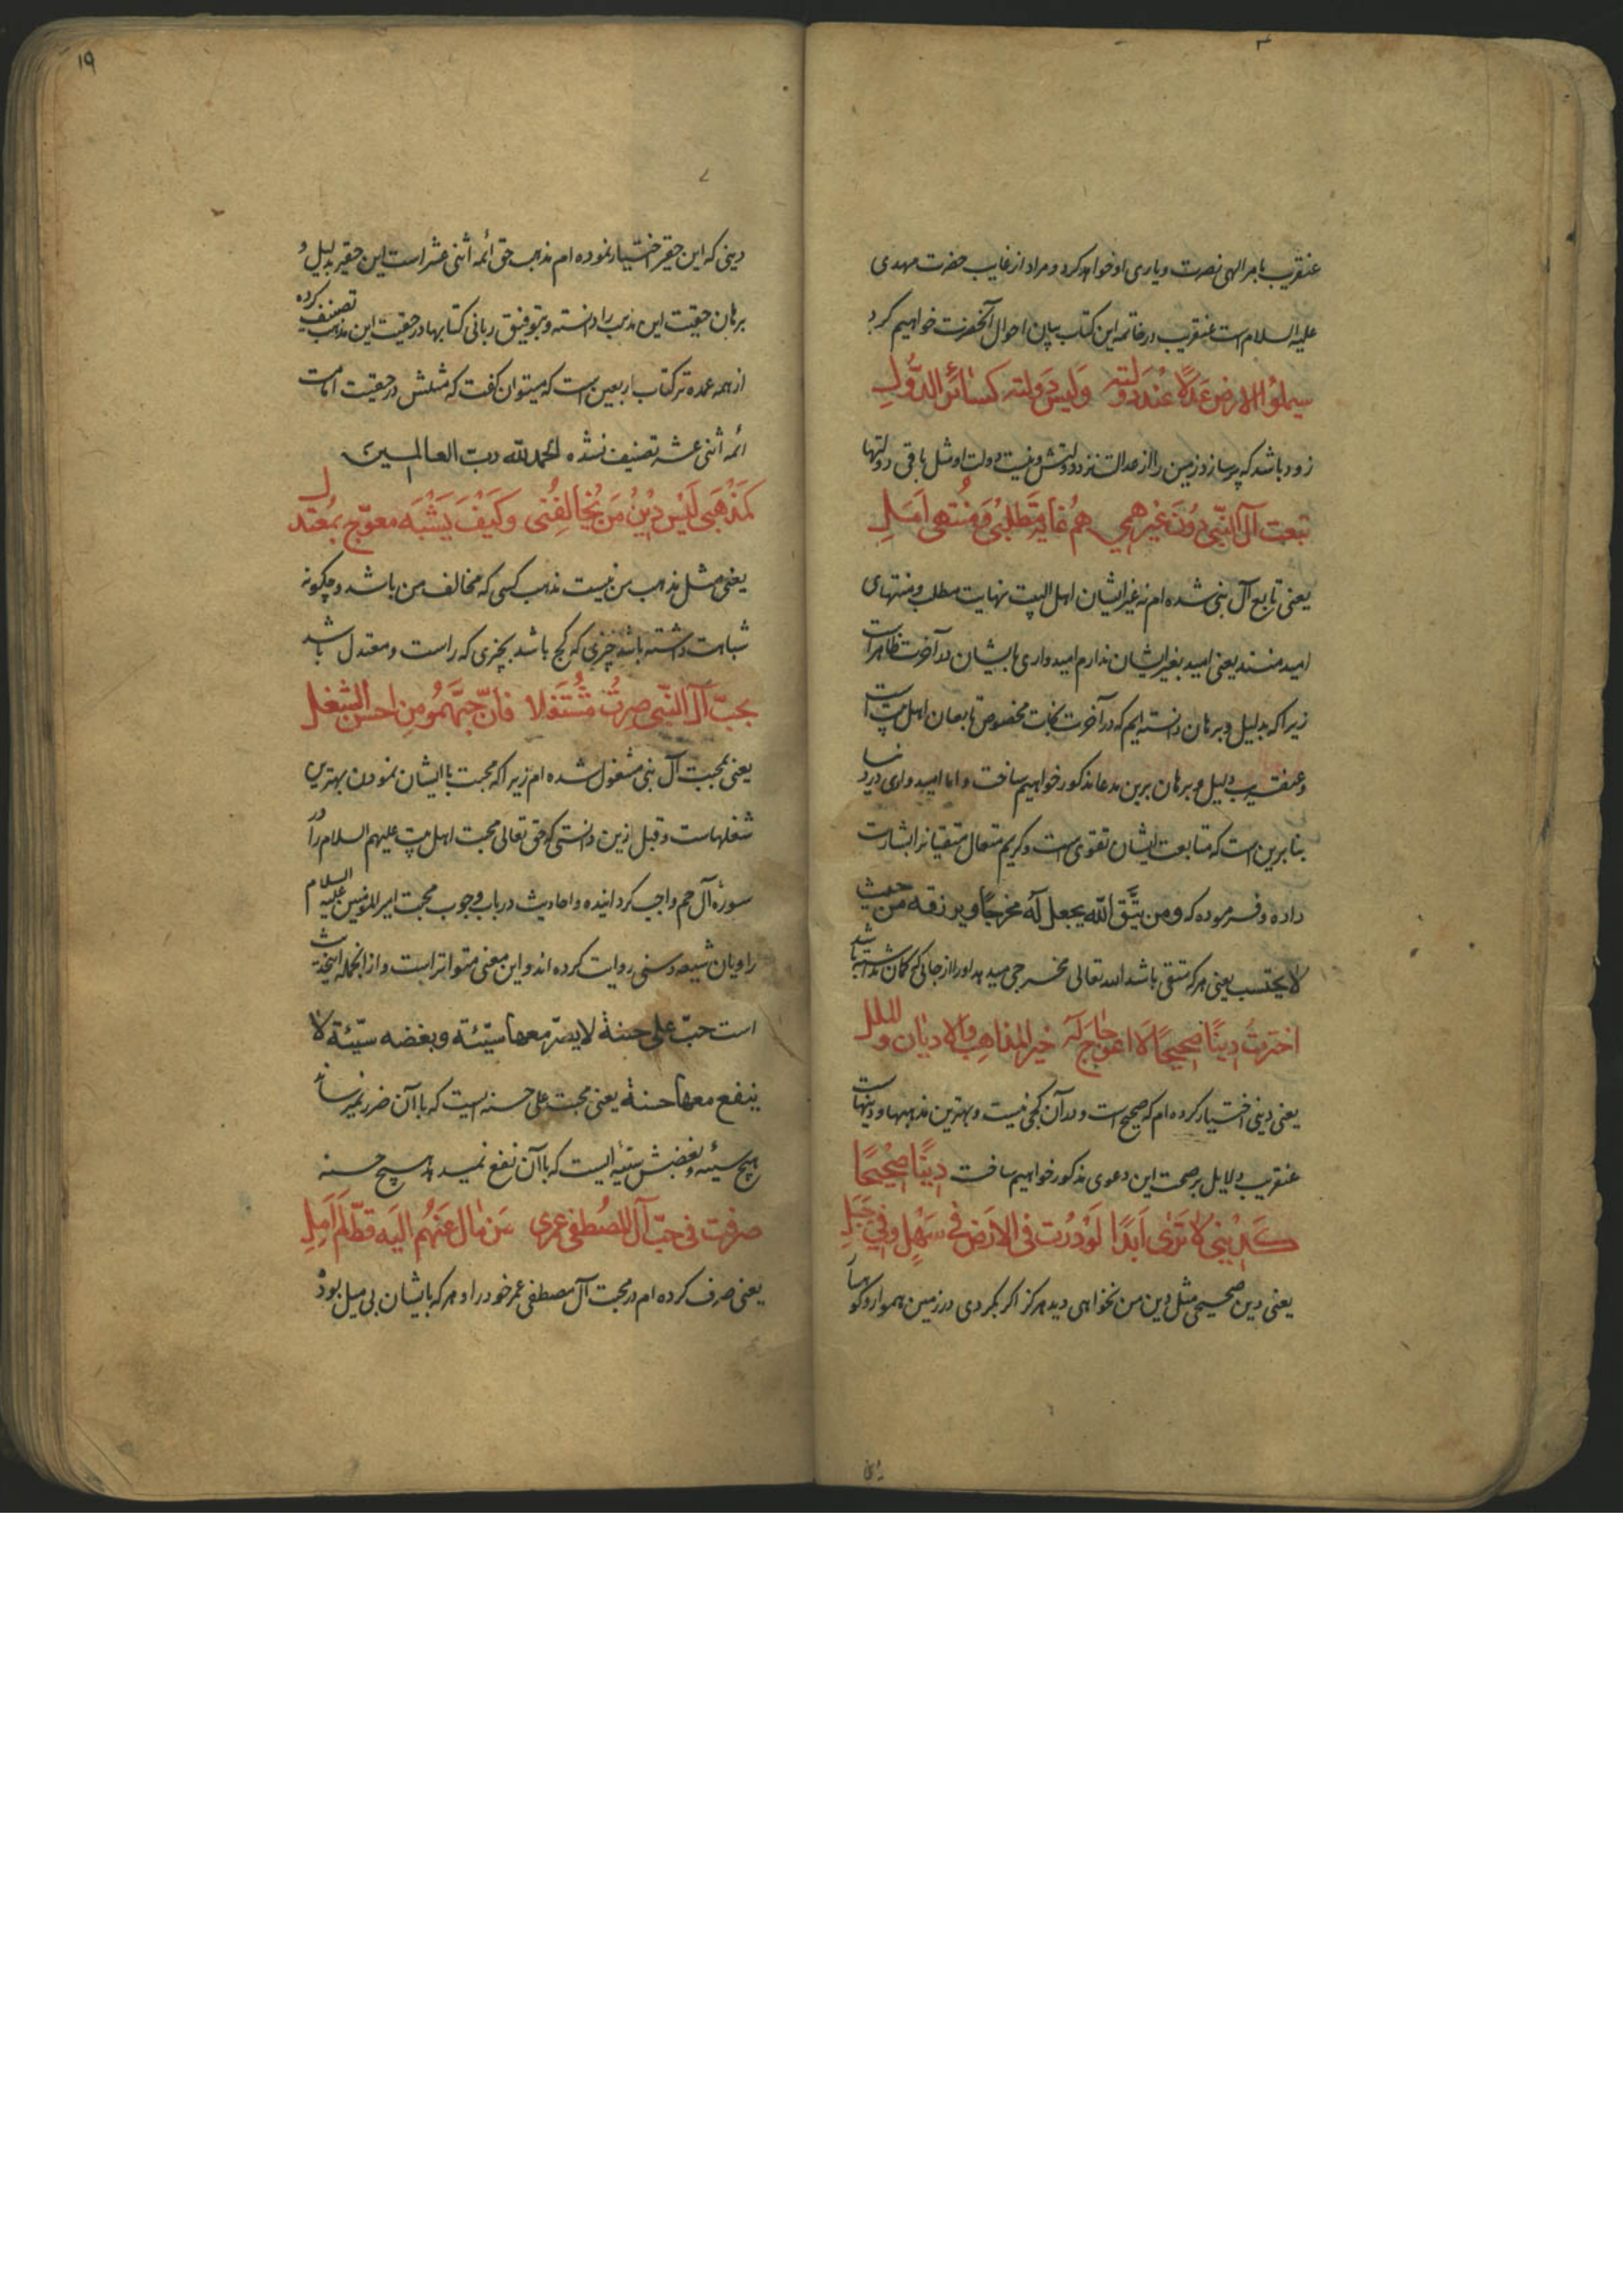 عنقریب بامر الهی نصرت و یاری او خواهد کرد و مراد از غایب حضرت مهدی
علیه السلام است عنقریب در خاتمه این کتاب بیان احوال آنحضرت خواهیم کرد
سیملؤا الارض عَدلًا عِندَ دَولته وَلیسَ دَولته کسَائر الدُّوَلِ
زود باشد که پر سازد زمین را از عدالت نزد دولتش و نیست دولت او مثل باقی دولتها
تبعت آل النّبی دُونَ غیرهمِ هُمُ غایة مَطلبی وَ مُنتهی اَمَلِ
یعنی تابع آل نبی شده ام نه غیر ایشان اهل البیت نهایت مطلب و منتهای
امید منند یعنی امید بغیر ایشان ندارم امیدواری بایشان در آخرت ظاهر است
زیرا که بدلیل و برهان دانسته ایم که در آخرت نجات مخصوص تابعان اهل بیت است
و عنقریب دلیل و برهان برین مدعا مذکور خواهیم ساخت و اما امیدواری در دنیا
بنابرین است که متابعت ایشان تقوی است و کریم متعال متقیانرا بشارت
داده و فرموده که و من یتَّق اللّه یجعل له مخرجًا و یرزقه من حیث
لا یحتسب یعنی هر که متقی باشد الله تعالی مخرجی میدهد او را از جائی که گمان نداشته باشد
اخترتُ دِینًا صَحیحًا لَا اعوِجاجَ لَه خیر المذاهِب وَالادیان و الملل
یعنی دینی اختیار کرده ام که صحیح است و در آن کجی نیست و بهترین مذهبها و دینهاست
عنقریب دلایل بر صحت این دعوی مذکور خواهیم ساخت دِینًا صَحیحًا
کَدِینی لَا تَرَی اَبَدًا لَوْ دُرْتَ فی الارَض فی سَهْلٍ و فی جَبَلِ
یعنی دین صحیحی مثل دین من نخواهی دید هرگز اگر بگردی در زمین هموار و کوهسار
دینی
۱۹
دینی که این حقیر اختیار نموده ام مذهب حق ائمه اثنی عشر است این حقیر بدلیل و
برهان حقیت این مذهب را دانسته و بتوفیق ربانی کتابها در حقیت این مذهب تصنیف کرده
از همه عمده تر کتاب اربعین است که میتوان گفت که مثلش در حقیت امامت
ائمه اثنی عشر تصنیف نشده الحمد للّه ربّ العالمین
کمَذْهَبی لَیْسَ دِیْنُ مَنْ یُخالِفُنی و کَیْفَ یَشْبَه معوّج بمُعتدل
یعنی مثل مذهب من نیست مذهب کسی که مخالف من باشد و چگونه
شباهت داشته باشد چیزی که کج باشد بچیزی که راست و معتدل باشد
بحبّ آل النّبی صِرتُ مُشْتَغلا فاِنّ حبّهمُو مِن احسن الشغل
یعنی بمحبت آل نبی مشغول شده ام زیرا که محبت با ایشان نمودن بهترین
شغلهاست و قبل ازین دانستی که حق تعالی محبت اهل بیت علیهم السلام را در
سورهٔ آل حم واجب گردانیده و احادیث در باب وجوب محبت امیر المؤمنین علیه السلام
راویان شیعه و سنی روایت کرده اند و این معنی متواتر است و از انجمله این حدیث
است حبّ علی حسنة لا یضرّ معها سیّئة و بغضه سیّئة لا
ینفع معها حسنة یعنی محبت علی حسنه ایست که با آن ضرر نمیرساند
هیچ سیئه و بغضش سیئه ایست که با آن نفع نمیدهد هیچ حسنه
صرفت فی حبّ آل المصُطفی عمری مَن مَال عَنهُم الیَه قطّ لَم اَمِلِ
یعنی صرف کرده ام در محبت آل مصطفی عمر خود را و هر که با ایشان بی میل بود